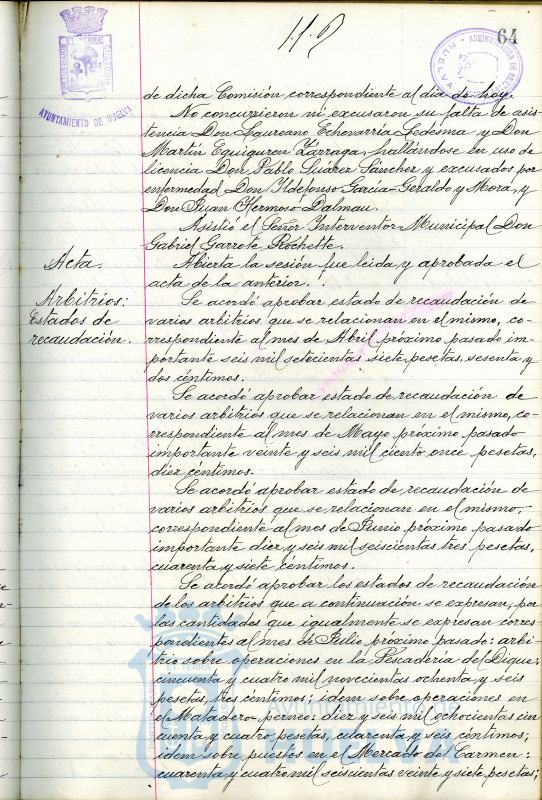 64
AYUNTAMIENTO DE HUELVA
de dicha Comisión, correspondiente al día de hoy.
No concurrieron ni excusaron su falta de asis-
tencia Don Laureano Echevarría Ledesma y Don
Martín Eguiguren Zárraga, hallándose en uso de
licencia Don Pablo Suárez Sánchez y excusados por
enfermedad Don Ildefonso García-Geraldo y Mora, y
Don Juan Hermoso Dalmau.
Asistió el Señor Interventor Municipal Don
Gabriel Garrote Rochette.
Acta.
Abierta la sesión fue leida y aprobada el
acta de la anterior.
Arbitrios:
Estados de
recaudación.
Se acordó aprobar estado de recaudación de
varios arbitrios que se relacionan en el mismo, co-
rrespondiente al mes de Abril próximo pasado im-
portante seis mil setecientas siete pesetas, sesenta y
dos céntimos.
Se acordó aprobar estado de recaudación de
varios arbitrios que se relacionan en el mismo, co-
rrespondiente al mes de Mayo próximo pasado
importante veinte y seis mil ciento once pesetas,
diez céntimos.
Se acordó aprobar estado de recaudación de
varios arbitrios que se relacionan en el mismo,
correspondiente al mes de Junio próximo pasado
importante diez y seis mil seiscientas tres pesetas,
cuarenta y siete céntimos.
Se acordó aprobar los estados de recaudación
de los arbitrios que a continuación se expresan, por
las cantidades que igualmente se expresan corres-
pondientes al mes de Julio próximo pasado: arbi-
trio sobre operaciones en la Pescadería del Dique:
cincuenta y cuatro mil novecientas ochenta y seis
pesetas, tres céntimos; idem sobre operaciones en
el Matadero perneo: diez y seis mil ochocientas cin
cuenta y cuatro pesetas, cuarenta y seis céntimos;
idem sobre puestos en el Mercado del Carmen:
cuarenta y cuatro mil seiscientas veinte y siete pesetas;
Ayuntamiento de